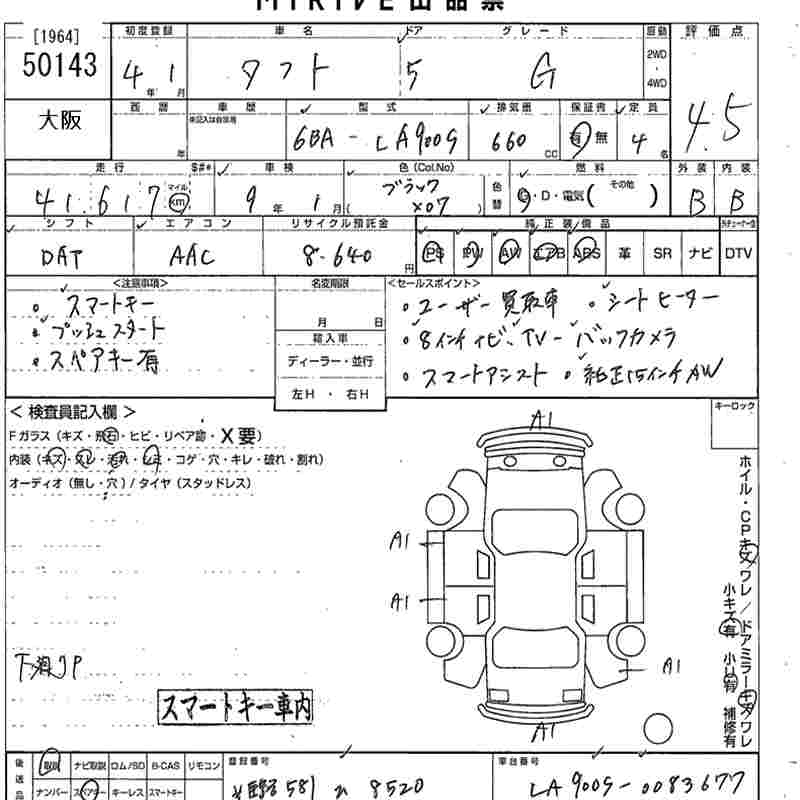 MIRIVE出品票
[1964]
50143
初度登録 車名 ドア グレード 原動 評価点
4年 1月 タフト 5 G 2WD・4WD 4.5
大阪
西暦 車歴 型式 排気量 保証書 定員
未記入は自家用
年 6BA-LA900S 660cc 有 無 4名
走行 $#* 車検 色(Col.No) 燃料 外装 内装
41,617 マイル km 9年 1月 ブラック
(X07) 色替 G・D・電気( その他 ) B B
シフト エアコン リサイクル預託金 純正装備品
DAT AAC 8,640円 PS PW AW エアB ABS 革 SR ナビ DTV
<注意事項> 名変期限 <セールスポイント>
。スマートキー
。プッシュスタート
。スペアキー有
月 日
輸入車
ディーラー・並行
左H・右H
。ユーザー買取車 。シートヒーター
。8インチナビ、TV-バックカメラ
。スマートアシスト 。純正15インチAW
<検査員記入欄> キーロック
Fガラス(キズ・飛石・ヒビ・リペア跡・X要)
内装(キズ・スレ・汚れ・シミ・コゲ・穴・キレ・破れ・割れ)
オーディオ(無し・穴)/タイヤ(スタッドレス)
A1
A1
A1
A1
A1
ホイル・CPキズ/ワレ/ドアミラーキズ/ワレ
小キズ有 小凹有 補修有
下廻りP
スマートキー車内
後送品 取説 ナビ取説 ロム/SD B-CAS リモコン 登録番号 車台番号
ナンバー スペアキー キーレス スマートキー 581 8520 LA900S-0083677